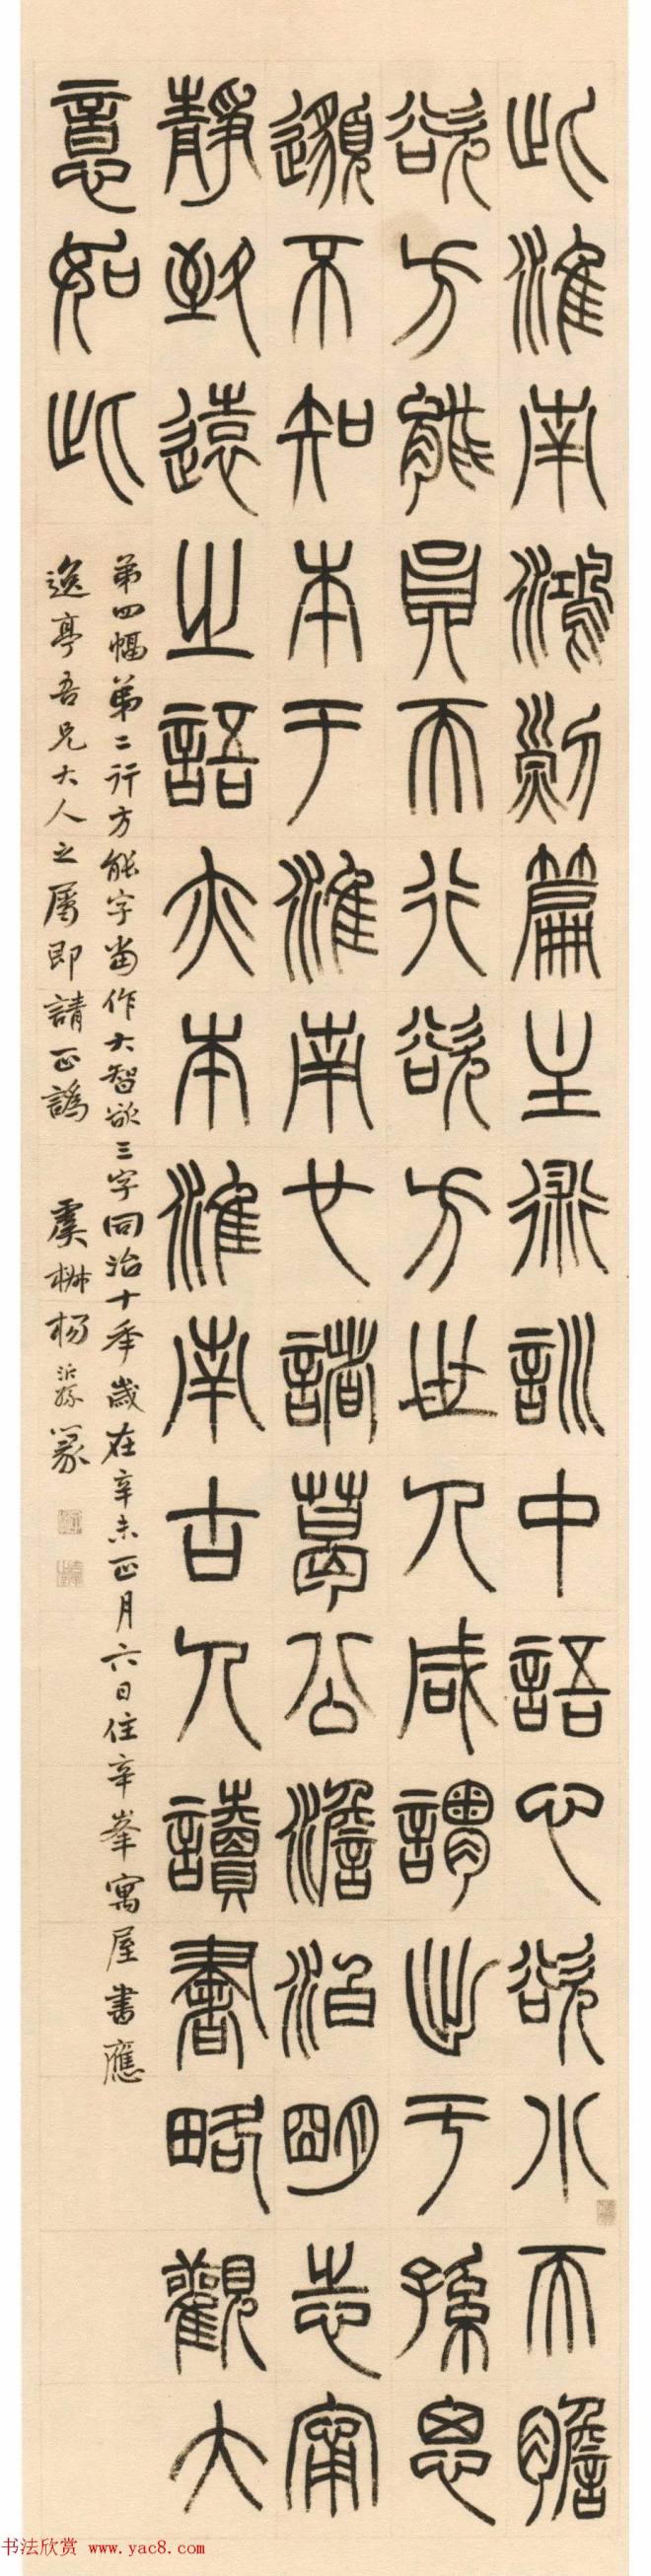 此淮南鴻烈篇主術訓中語心欲小而膽
欲方能員而行欲方世人咸謂出于孫思
邈不知本于淮南也諸葛公澹泊明志甯
靜致遠之語亦本淮南古人讀書略觀大
意如此
弟四幅弟二行方能字當作大智欲三字同治十年歲在辛未正月六日住辛峯寓屋書應
逸亭吾兄大人之屬即請正譌 虞椒楊沂孫篆
书法欣赏 www.yac8.com